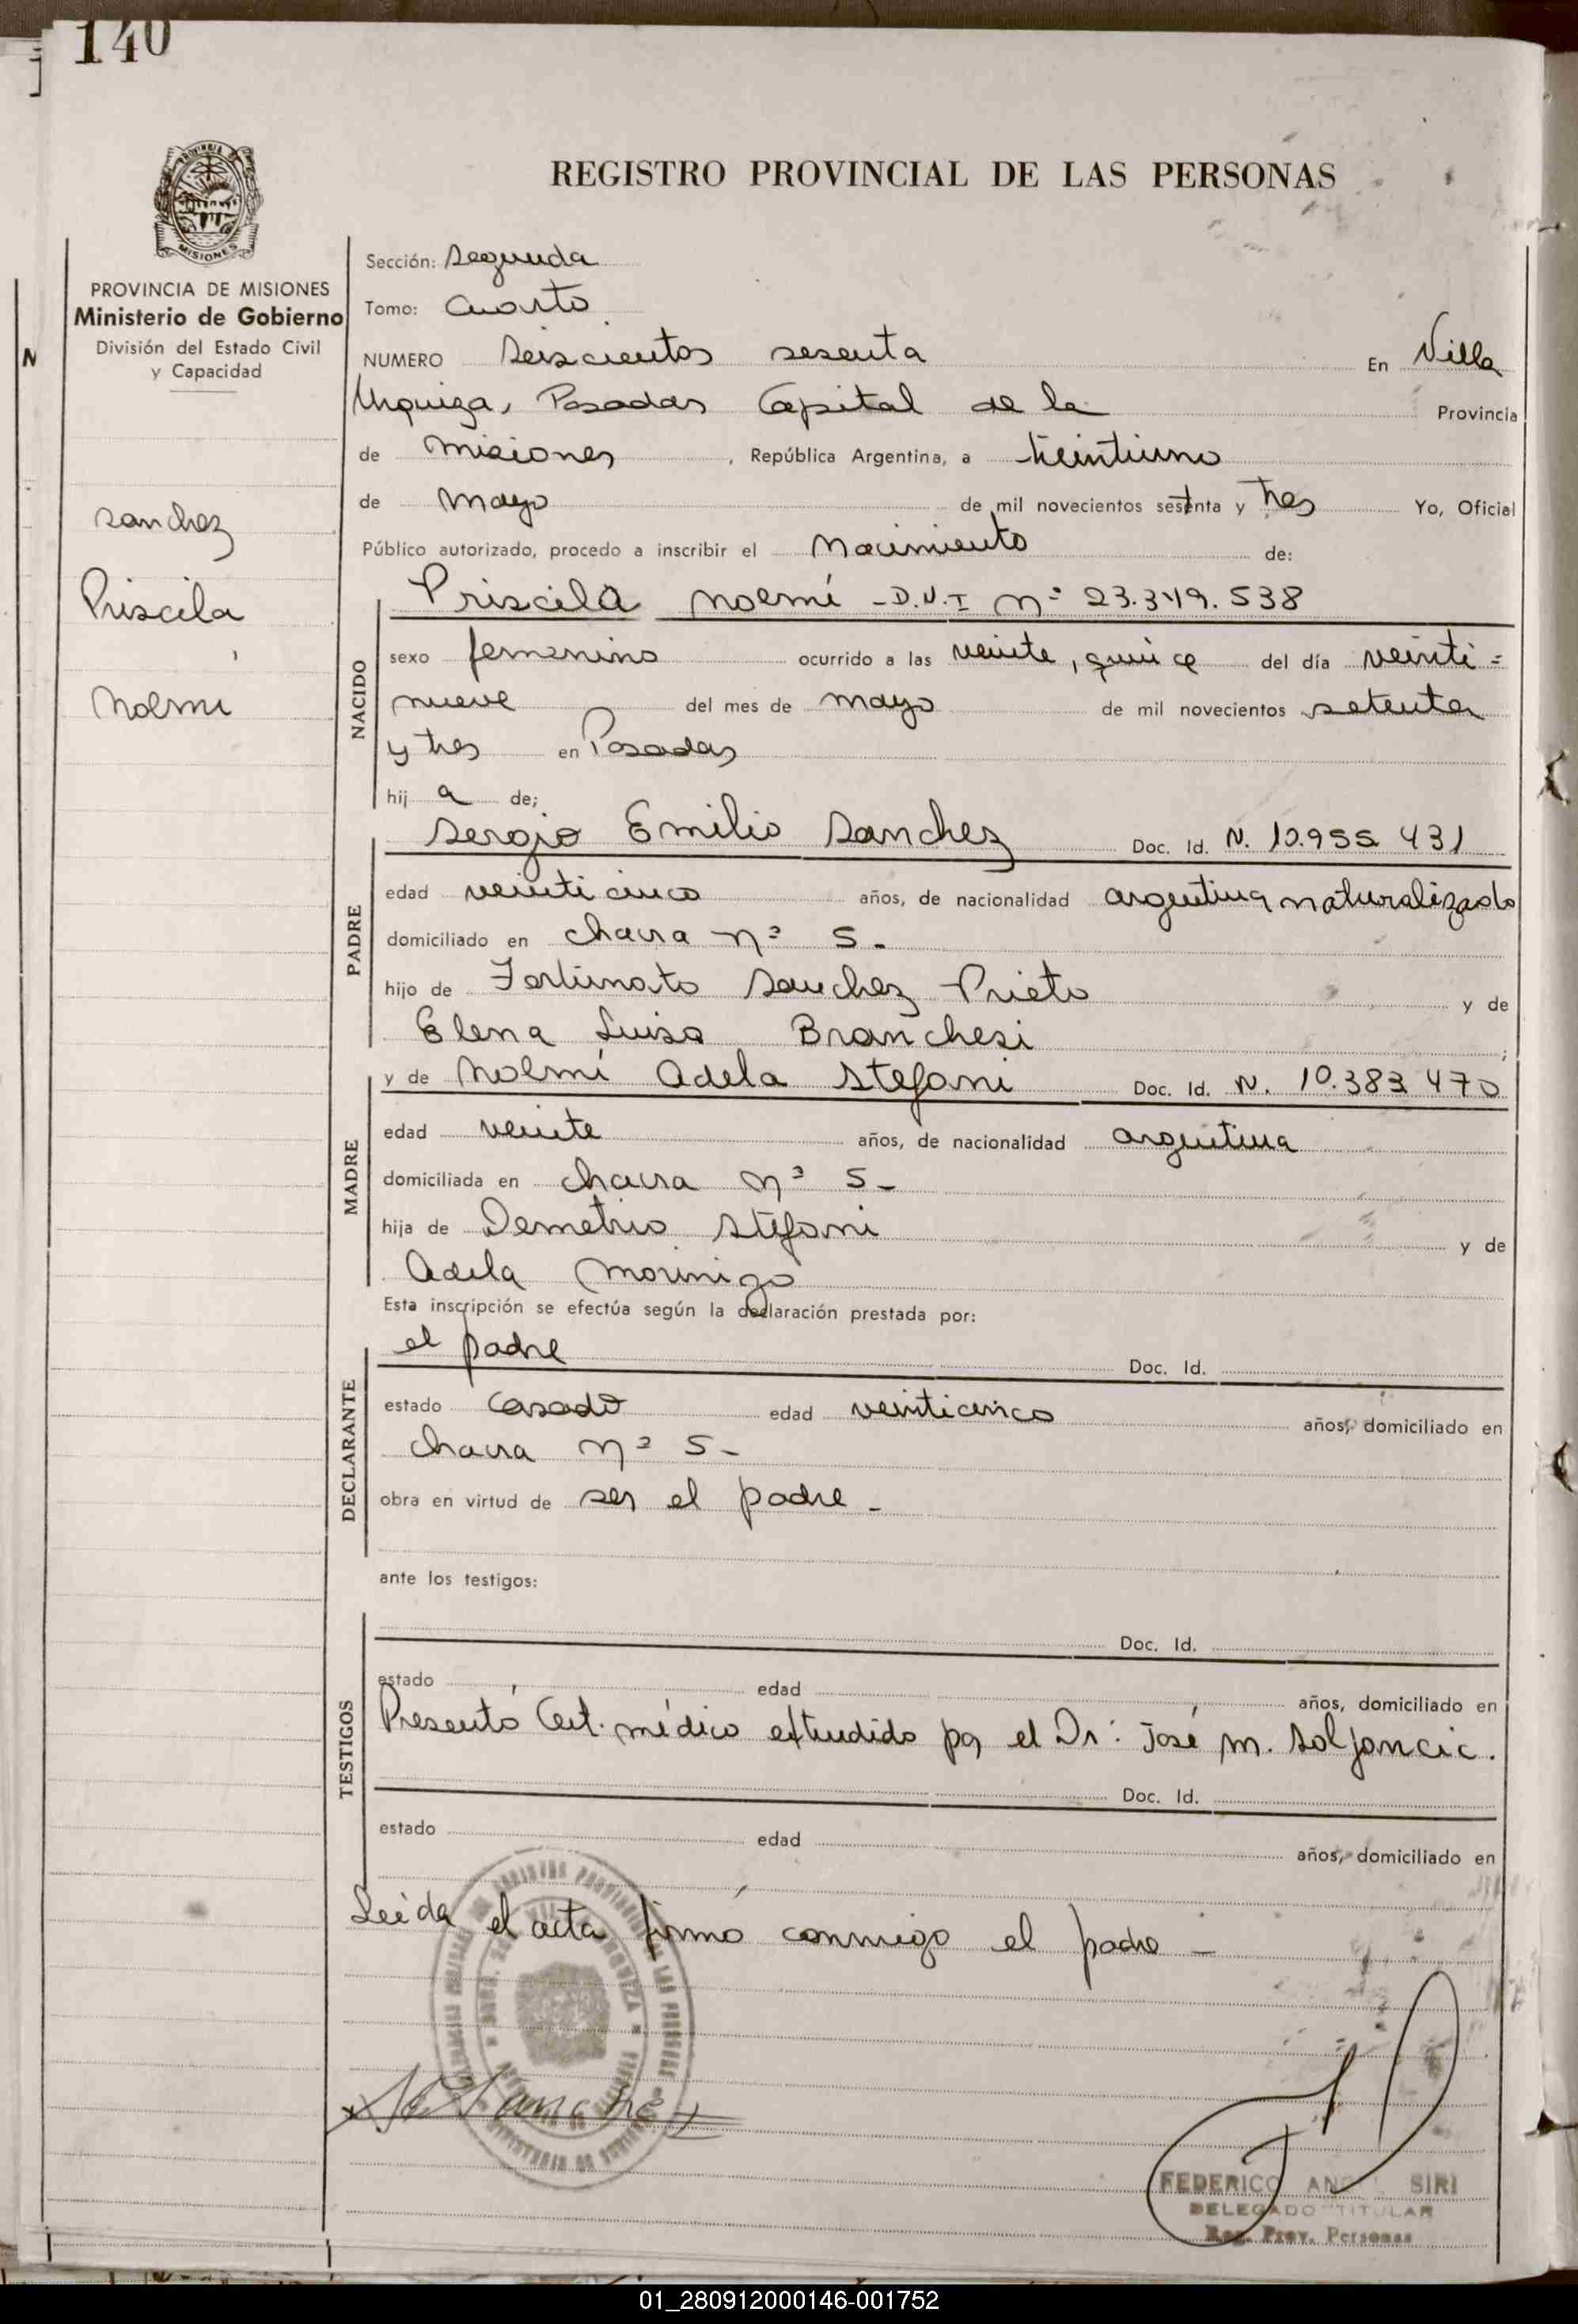 140
MISIONES
PROVINCIA DE MISIONES
Ministerio de Gobierno
División del Estado Civil
y Capacidad
sanchez
Priscila
Noemi
REGISTRO PROVINCIAL DE LAS PERSONAS
Sección: Segunda
Tomo: Cuarto
NUMERO Seiscientos sesenta En Villa
Urquiza, Posadas Capital de la Provincia
de Misiones, República Argentina, a treintiuno
de Mayo de mil novecientos setenta y tres Yo, Oficial
Público autorizado, procedo a inscribir el Nacimiento de:
Priscila Noemí - D.N.I nº 23.349.538
NACIDO
sexo femenino ocurrido a las veinte, quince del día veinti=
nueve del mes de mayo de mil novecientos setenta
y tres en Posadas
hij a de;
PADRE
Sergio Emilio Sanchez Doc. Id. N. 10.955 431
edad veinticinco años, de nacionalidad argentina naturalizado
domiciliado en chacra nº 5-
hijo de Fortunato Sanchez Prieto y de
Elena Luisa Branchesi;
MADRE
y de Noemí Adela Stefani Doc. Id. N. 10.383 470
edad veinte años, de nacionalidad argentina
domiciliada en chacra nº 5-
hija de Demetrio Stefani y de
Adela Morinigo
Esta inscripción se efectúa según la declaración prestada por:
DECLARANTE
el padre Doc. Id.
estado Casado edad veinticinco años, domiciliado en
chacra nº 5-
obra en virtud de ser el padre -
ante los testigos:
TESTIGOS
Doc. Id.
estado edad años, domiciliado en
Presentó Cert. médico extendido por el Dr: José M. Soljancic.
Doc. Id.
estado edad años, domiciliado en
Leída el acta firmó conmigo el padre -
Sanchez
FEDERICO SIRI
DELEGADO TITULAR
Reg. Prov. Personas
01_280912000146-001752